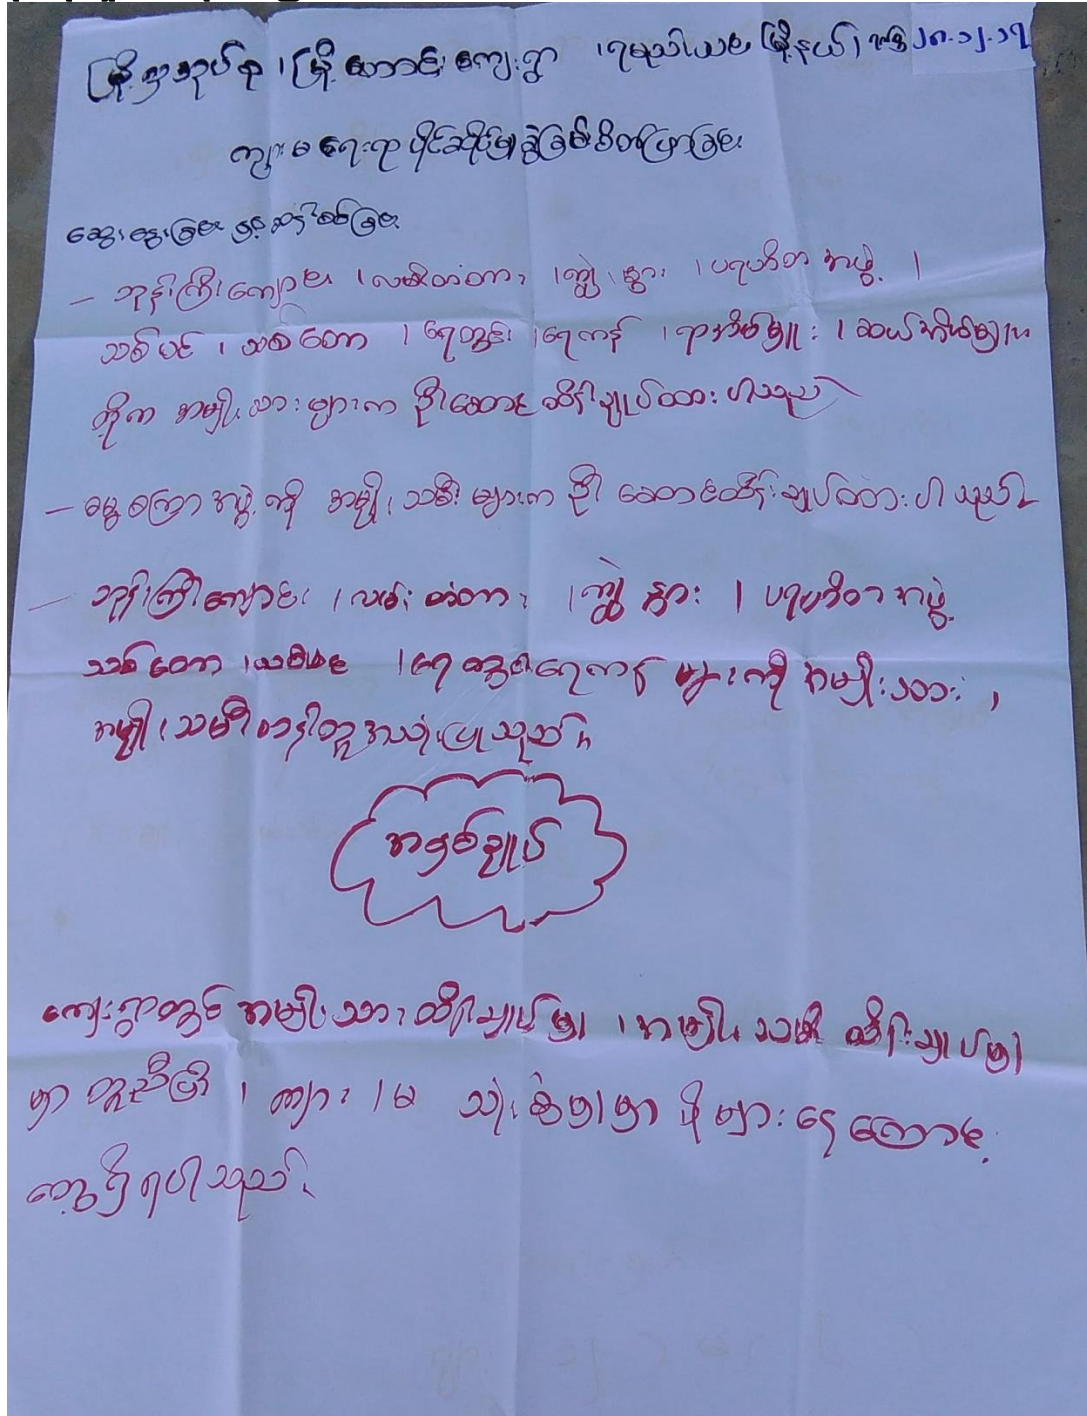 မြို့ကုပ်စု၊ မြို့ဟောင်းကျေးရွာ ၊ ရမည်းသင်းမြို့နယ်၊ ရက်စွဲ ၂၈.၁၂.၁၇
ကျား မ ရေးရာ ပိုင်ဆိုင်မှုခွဲခြမ်းစိတ်ဖြာခြင်း
ဆွေးနွေးခြင်းနှင့်ဆန်းစစ်ခြင်း
- ဘုန်းကြီးကျောင်း ၊ လမ်းတံတား ၊ ကျွဲ၊ နွား ၊ ပရဟိတ အဖွဲ့ ၊
သစ်ပင် ၊ သစ်တော ၊ ရေတွင်း ၊ ရေကန် ၊ ရာအိမ်မှူး ၊ ဆယ်အိမ်မှူး
တို့က အမျိုးသားများက ဦးဆောင်ထိန်းချုပ်ထားပါသည်
- ဓမ္မစကြာအဖွဲ့ကို အမျိုးသမီးများက ဦးဆောင်ထိန်းချုပ်ထားပါသည်။
- ဘုန်းကြီးကျောင်း ၊ လမ်းတံတား ၊ ကျွဲနွား ၊ ပရဟိတအဖွဲ့
သစ်တော ၊ သစ်ပင် ၊ ရေတွင်းရေကန် များကို အမျိုးသား ၊
အမျိုးသမီးတန်းတူအသုံးပြုသည်။
အနှစ်ချုပ်
ကျေးရွာတွင် အမျိုးသားထိန်းချုပ်မှု ၊ အမျိုးသမီးထိန်းချုပ်မှု
မှာ တူညီပြီး ၊ ကျား ၊ မ သုံးစွဲမှုမှာ ပိုများနေကြောင့်
တွေ့ရှိရပါသည်။